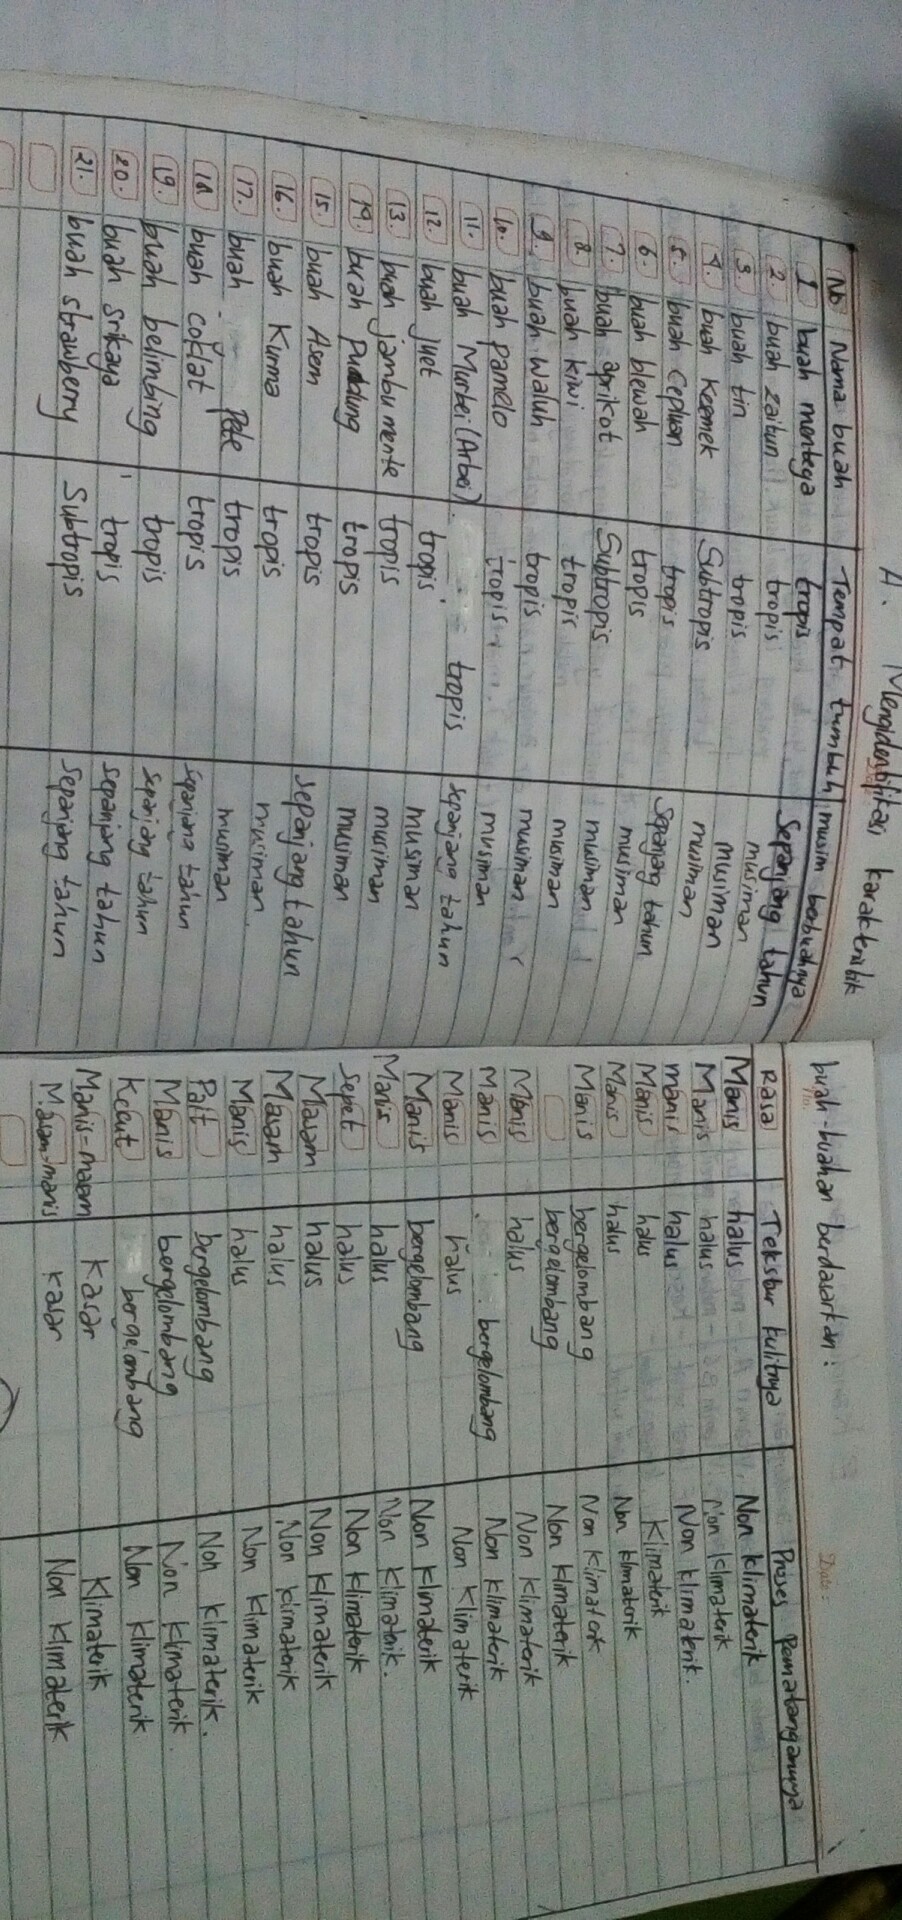 A. Mengidentifikasi karakteristik
No Nama buah Tempat tumbuh musim berbuahnya
1 buah mentega tropis sepanjang tahun
2. buah zaitun tropis musiman
3. buah tin tropis musiman
4. buah Kesemek Subtropis musiman
5. buah tropis sepanjang tahun
6. buah blewah tropis musiman
7. buah aprikot Subtropis musiman
8. buah kiwi tropis musiman
9. buah waluh tropis musiman
10. buah pamelo tropis musiman
11. buah Murbei (Arbei) tropis sepanjang tahun
12. buah juet tropis musiman
13. buah jambu mente tropis musiman
14. buah pundung tropis musiman
15. buah Asem tropis sepanjang tahun
16. buah Kurma tropis musiman
17. buah Pete tropis musiman
18. buah coklat tropis sepanjang tahun
19. buah belimbing tropis sepanjang tahun
20. buah srikaya tropis sepanjang tahun
21. buah strawbery Subtropis sepanjang tahun
No:
Date:
buah-buahan berdasarkan:
Rasa Tekstur kulitnya Proses pematangannya
Manis halus Non klimaterik
Manis halus Non klimaterik
manis halus Non klimaterik.
Manis halus Klimaterik
Manis halus Non klimaterik
Manis bergelombang Non klimaterik
bergelombang Non klimaterik
Manis halus Non klimaterik
Manis bergelombang Non klimaterik
Manis halus Non klimaterik
Manis bergelombang Non klimaterik
Manis halus Non klimaterik.
Sepet halus Non klimaterik
Masam halus Non klimaterik
Masam halus Non klimaterik
Manis halus Non klimaterik
Pait bergelombang Non klimaterik.
Manis bergelombang Non klimaterik.
Kecut bergelombang Non klimaterik
Manis-masam Kasar Klimaterik
Masam-manis kasar Non klimaterik